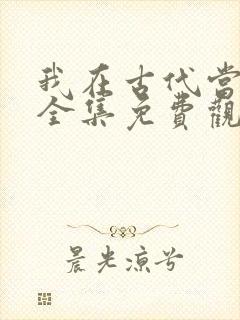 我在古代當
全集免費觀
晨光涼兮